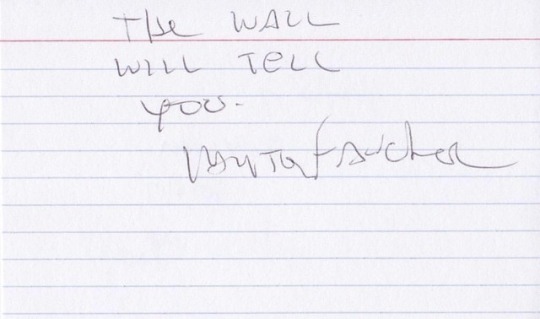 The WALL
WILL TELL
YOU.